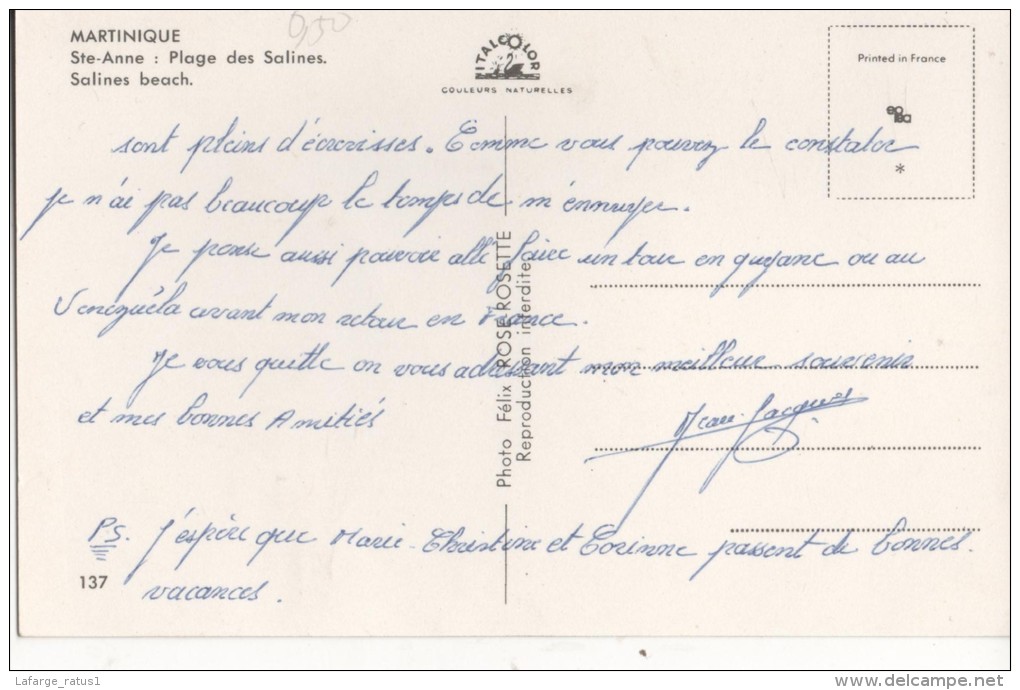 MARTINIQUE
Ste-Anne : Plage des Salines.
Salines beach.
0,50
ITALCOLOR
COULEURS NATURELLES
Printed in France
*
sont pleins d'écrevisses. Comme vous pouvez le constater
je n'ai pas beaucoup le temps de m'ennuyer.
Je pense aussi pouvoir allé faire un tour en guyane ou au
Venezuela avant mon retour en France.
Je vous quitte en vous adressant mon meilleur souvenir
et mes bonnes Amitiés
Jean-Jacques
PS. J'espère que Marie-Christine et Corinne passent de bonnes
vacances.
137
Photo Félix ROSE-ROSETTE
Reproduction interdite
Lafarge_ratus1
www.delcampe.net